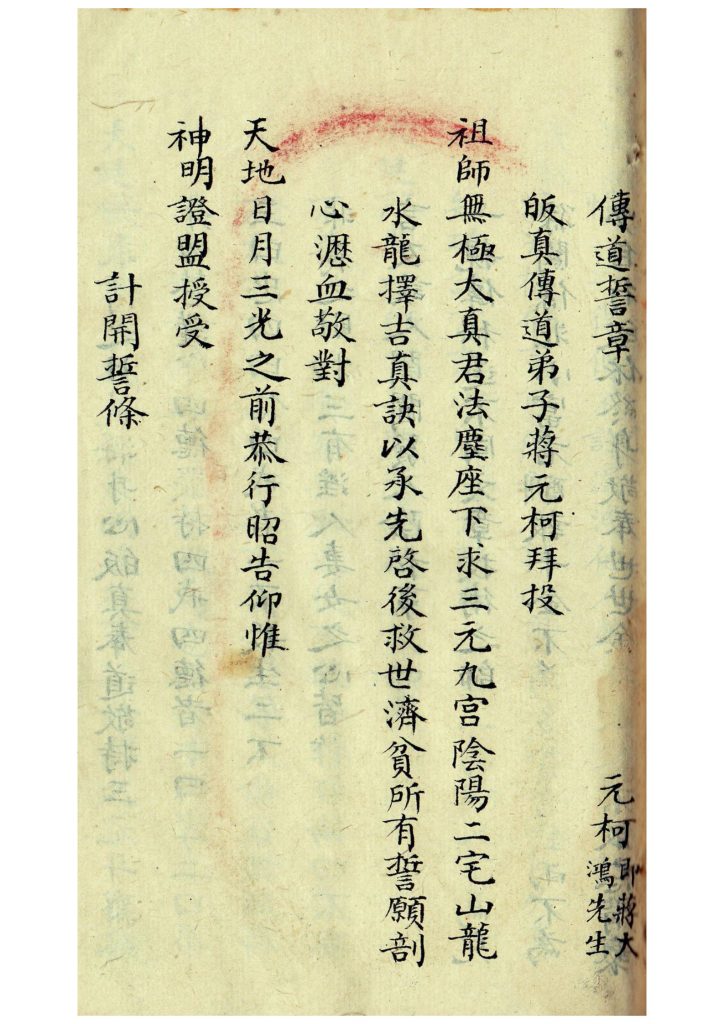 傳道誓章
元柯即蔣大鴻先生
皈真傳道弟子蔣元柯拜投
祖師無極大真君法塵座下求三元九宮陰陽二宅山龍
水龍擇吉真訣以承先啓後救世濟貧所有誓願剖
心瀝血敬對
天地日月三光之前恭行昭告仰惟
神明證盟授受
計開誓條